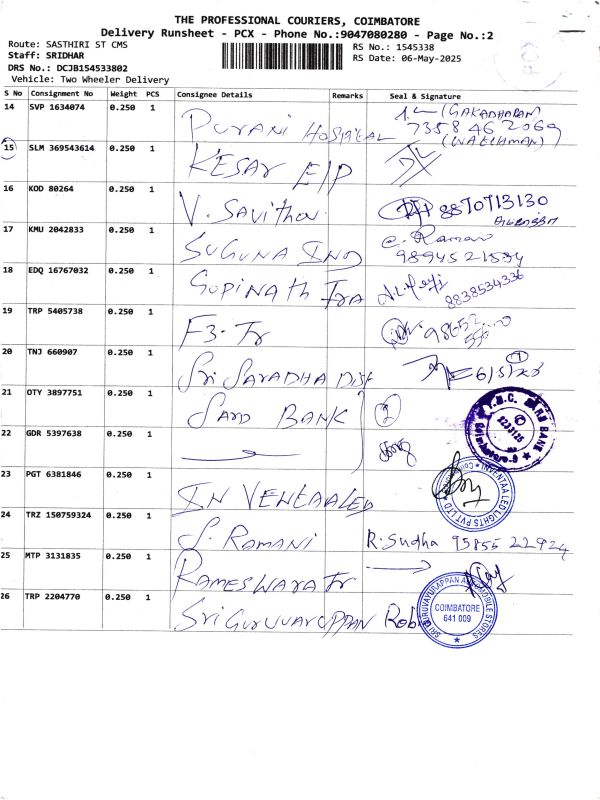 THE PROFESSIONAL COURIERS, COIMBATORE
Delivery Runsheet - PCX - Phone No.:9047080280 - Page No.:2
Route: SASTHIRI ST CMS
RS No.: 1545338
Staff: SRIDHAR
RS Date: 06-May-2025
DRS No.: DCJB154533802
Vehicle: Two Wheeler Delivery
S No Consignment No Weight PCS Consignee Details Remarks Seal & Signature
14 SVP 1634074 0.250 1 PURANI HOSPITAL (GAKADHARAN)
7358462069
(WATCHMAN)
15 SLM 369543614 0.250 1 KESAR E/P
16 KOD 80264 0.250 1 V. Savitha 8870713130
17 KMU 2042833 0.250 1 SUGUNA IND C. Raman
9894521534
18 EDQ 16767032 0.250 1 GOPINATH Tra 8838534336
19 TRP 5405738 0.250 1 F3. Tr
20 TNJ 660907 0.250 1 Sri SARADHA Dist 6/5/25
21 OTY 3897751 0.250 1 SARD BANK 2
22 GDR 5397638 0.250 1
23 PGT 6381846 0.250 1 IN VENTAALED
INVENTAA LED LIGHTS PVT LTD
24 TRZ 150759324 0.250 1 S. RAMANI R. Sudha 95855 22924
25 MTP 3131835 0.250 1 RAMESWARA Tr
26 TRP 2204770 0.250 1 Sri GURUVAYURUPPAN Rob
SRI GURUVAYURAPPAN AUTOMOBILE STORES
COIMBATORE
641 009